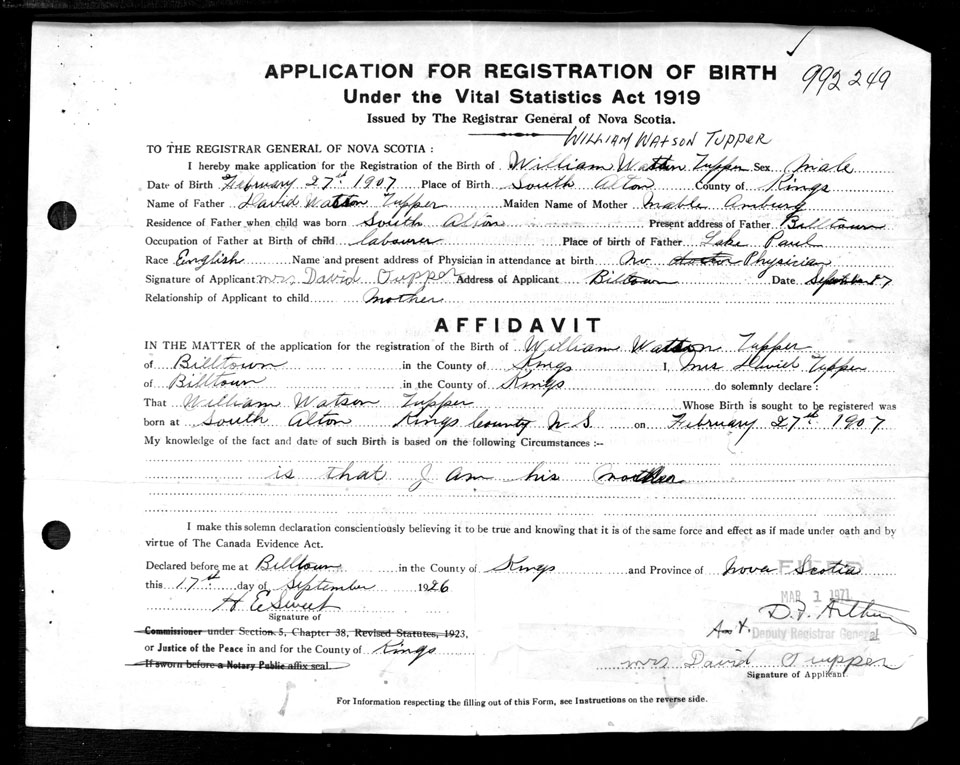 992249
APPLICATION FOR REGISTRATION OF BIRTH
Under the Vital Statistics Act 1919
Issued by The Registrar General of Nova Scotia.
WILLIAM WATSON TUPPER
TO THE REGISTRAR GENERAL OF NOVA SCOTIA :
I hereby make application for the Registration of the Birth of William Watson Tupper Sex Male
Date of Birth February 27th 1907 Place of Birth South Alton County of Kings
Name of Father David Watson Tupper Maiden Name of Mother Mable Amburg
Residence of Father when child was born South Alton Present address of Father Billtown
Occupation of Father at Birth of child labourer Place of birth of Father Lake Paul
Race English Name and present address of Physician in attendance at birth No Physician
Signature of Applicant mrs David Tupper Address of Applicant Billtown Date
Relationship of Applicant to child mother
AFFIDAVIT
IN THE MATTER of the application for the registration of the Birth of William Watson Tupper
of Billtown in the County of Kings I, Mrs David Tupper
of Billtown in the County of Kings do solemnly declare :
That William Watson Tupper Whose Birth is sought to be registered was
born at South Alton Kings County N S on February 27th 1907
My knowledge of the fact and date of such Birth is based on the following Circumstances :--
is that I am his mother
I make this solemn declaration conscientiously believing it to be true and knowing that it is of the same force and effect as if made under oath and by
virtue of The Canada Evidence Act.
Declared before me at Billtown in the County of Kings and Province of Nova Scotia
this 17th day of September 1926
FILED
MAR 1 1971
H E Sweet
Signature of
Commissioner under Section 5, Chapter 38, Revised Statutes, 1923,
or Justice of the Peace in and for the County of Kings
If sworn before a Notary Public affix seal.
Deputy Registrar General
mrs David Tupper
Signature of Applicant.
For Information respecting the filling out of this Form, see Instructions on the reverse side.